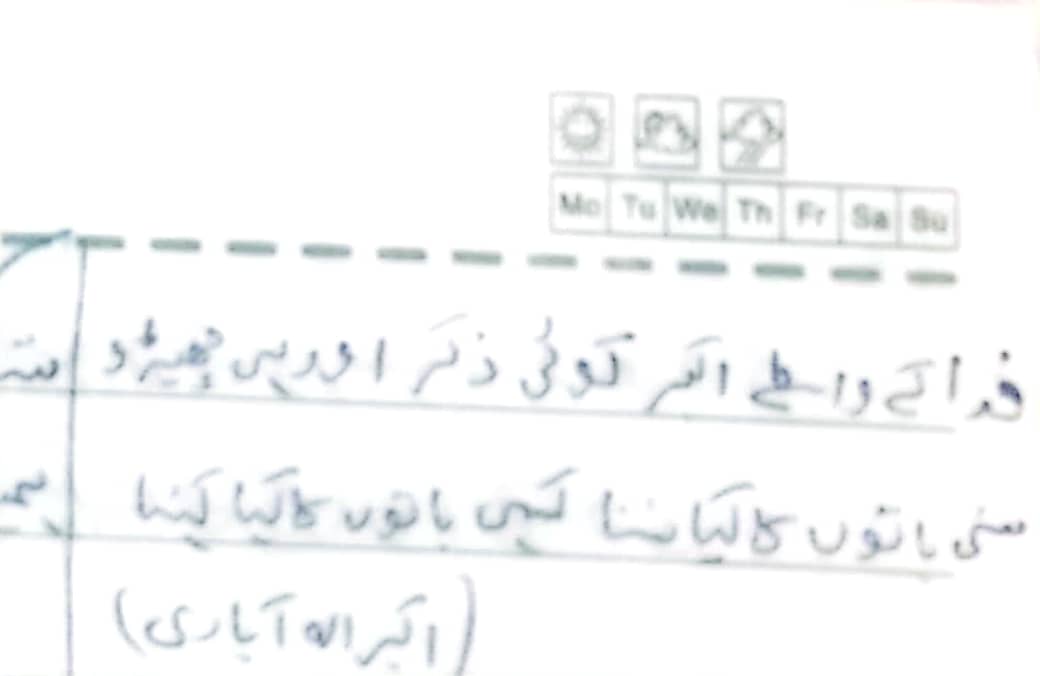 Mo Tu We Th Fr Sa Su
خدا کے واسطے اکبر کوئی ذکر اور ہی چھیڑو
سنی باتوں کا کیا سننا کہی باتوں کا کیا کہنا
(اکبر الہ آبادی)